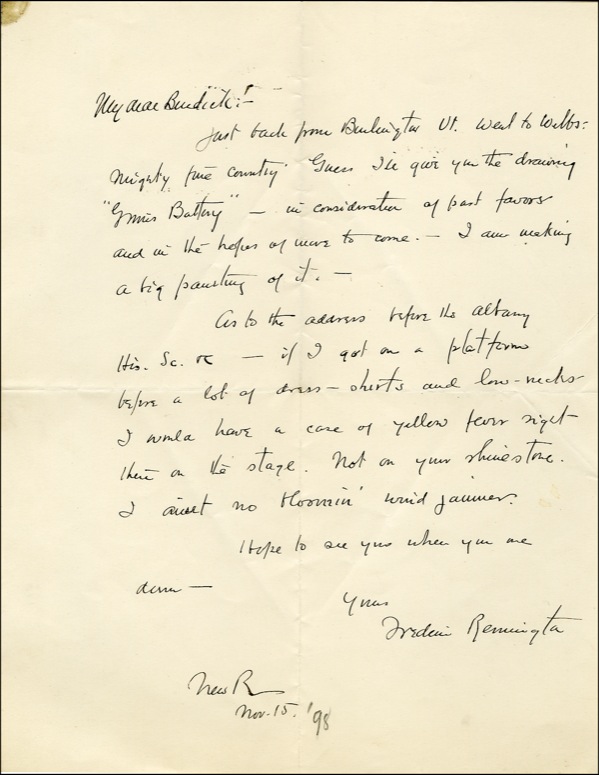 My dear Burdick:—
Just back from Burlington Vt. Went to Webbs:
mighty fine country Guess I'll give you the drawing
"Grimes Battery" — in consideration of past favors
and in the hopes of more to come. — I am making
a big painting of it. —
As to the address before the Albany
His. Sc. — if I got on a platform
before a lot of dress-shirts and low-necks
I would have a case of yellow fever right
there on the stage. Not on your rhinestone.
I ain't no bloomin' wind jammer.
Hope to see you when you are
down —
Yours
Frederic Remington
New R
Nov. 15. '98